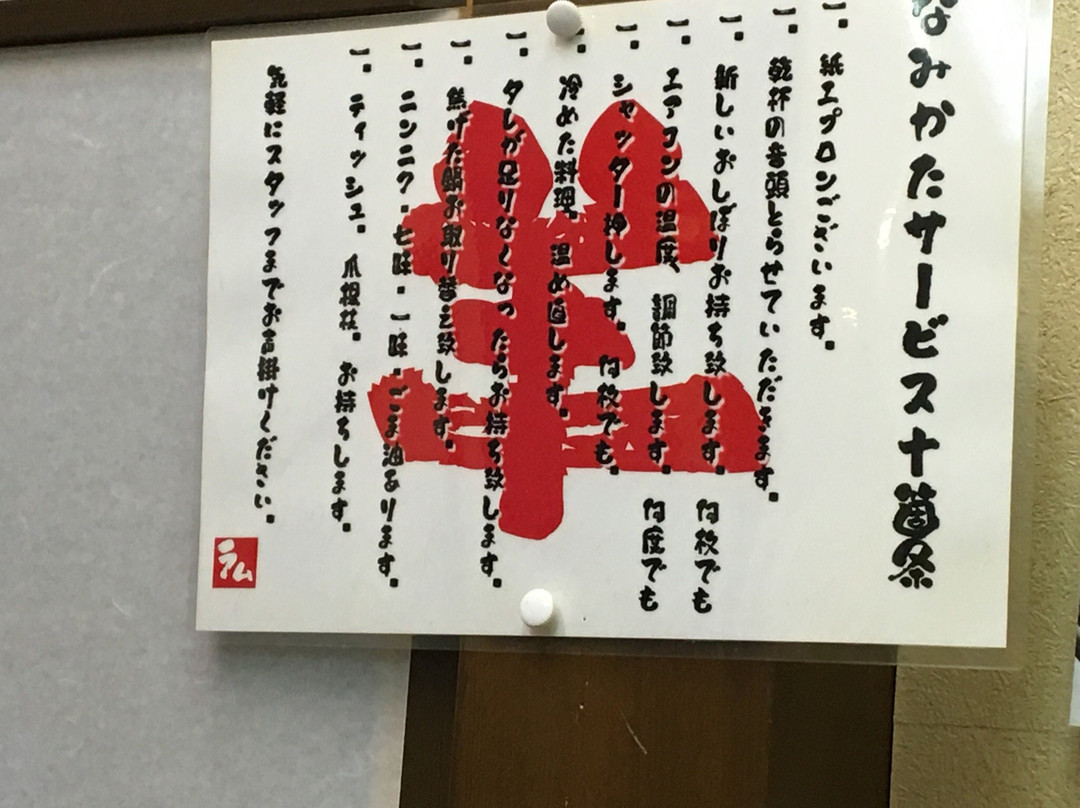 なみかたサービス十箇条
一.紙エプロンございます。
一.乾杯の音頭とらせていただきます。
一.新しいおしぼりお持ち致します。何枚でも
一.エアコンの温度、調節致します。何度でも
一.シャッター押します。何枚でも。
一.冷めた料理。温め直します。
一.タレが足りなくなったらお持ち致します。
一.焦げた鍋お取り替え致します。
一.ニンニク.七味.一味.ごま油あります。
一.ティッシュ。爪楊枝。お持ちします。
気軽にスタッフまでお声掛けください。
ラム